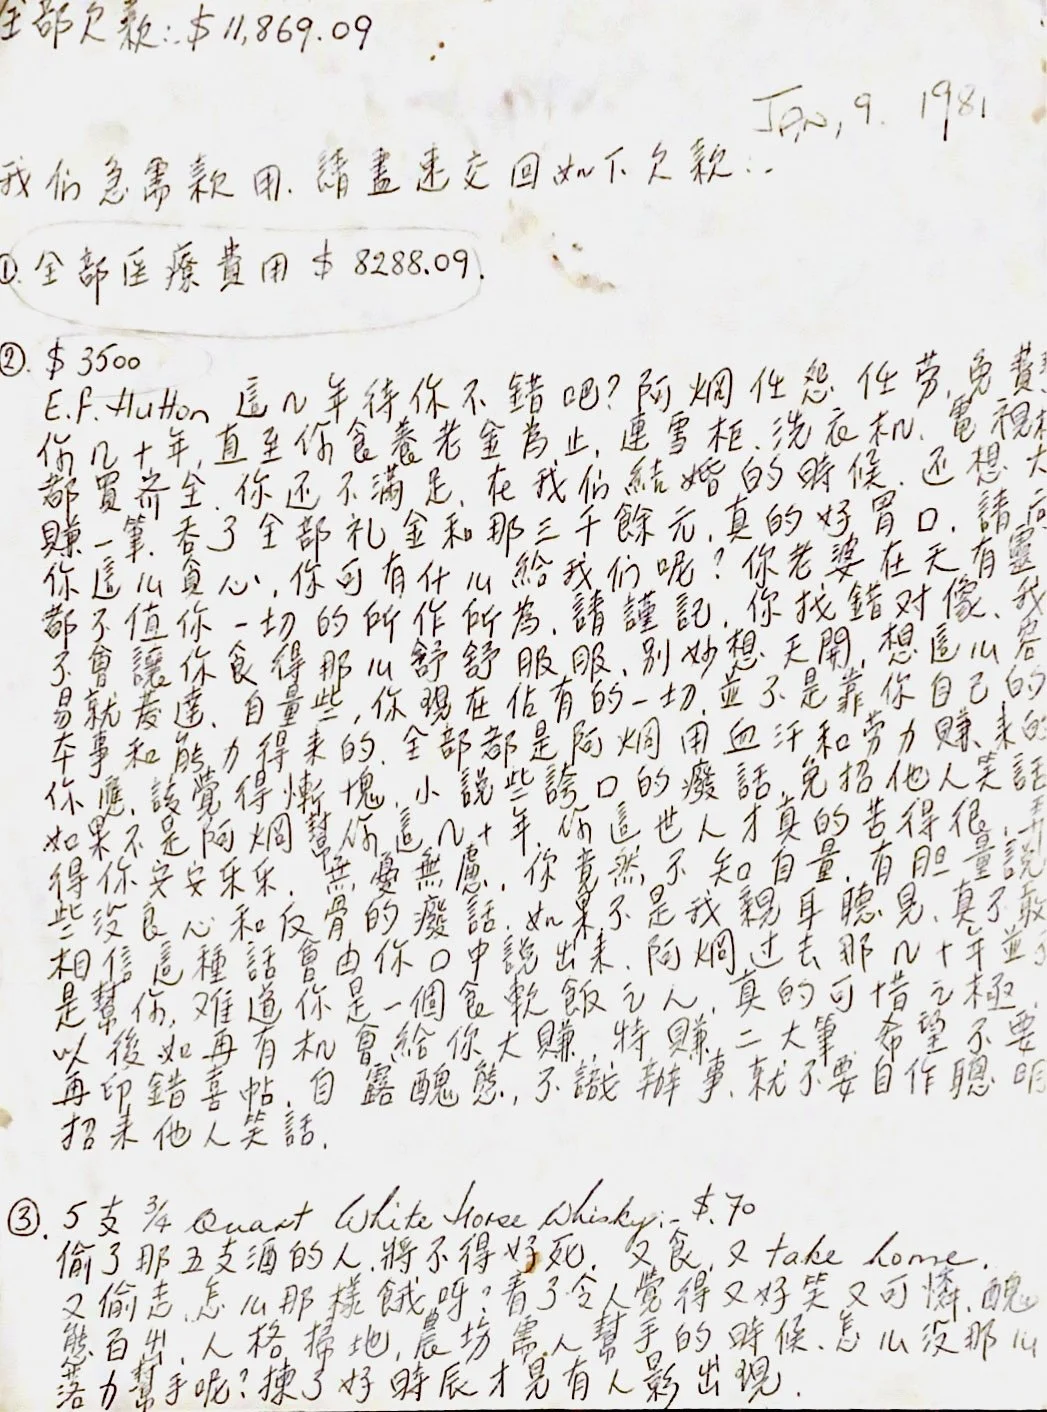 全部欠款:. $ 11,869.09
JAN, 9. 1981
我们急需款用. 請盡速交回如下欠款:-
①. 全部医療費用 $ 8288.09.
②. $ 3500
E.F. Hutton 這几年待你不錯吧? 阿烱任怨任劳, 免費
你几十年, 直至你食養老金為止, 連雪柜、洗衣机、電視
都買齐全. 你还不滿足, 在我们結婚的時候. 还想大
賺一筆. 吞了全部礼金和那三千餘元, 真的好胃口. 請问
你這么貪心, 你可有什么給我们呢? 你老婆在天有靈
都不值你一切的所作所為. 請謹記, 你找錯对像. 我
不會讓你食得那么舒舒服服. 别妙想天開, 想這么容
易就發達. 自量些, 你現在佔有的一切, 並不是靠你自己的
本事和能力得来的. 全部都是阿烱用血汗和劳力賺来的
你應該覺得慚愧. 小説些誇口的廢話, 免招他人笑話
如果不是阿烱幫你這几十年, 你這世人才真的苦得很, 弄
得你安安乐乐. 無憂無慮, 你竟然不知自量. 有胆量說
些没良心和反骨的廢話. 如果不是我親耳聽見, 真不敢
相信這種話會由你口中説出来. 阿烱过去那几十年並不
是幫你, 难道你是一個食軟飯之人, 真的可惜之極.
以後如再有机會給你大賺, 特賺二大筆, 希望不要
再印錯喜帖. 自露醜態, 不識辦事. 就不要自作聰明
招来他人笑話.
③. 5支 3/4 Quart White Horse Whisky:- $.70
偷了那五支酒的人. 將不得好死. 又食, 又 take home.
又偷走. 怎么那樣餓呀? 看了令人覺得又好笑又可憐. 醜
態百出, 人格掃地, 農坊需人幫手的時候. 怎么没那么
落力幫手呢? 揀了好時辰才見有人影出現.